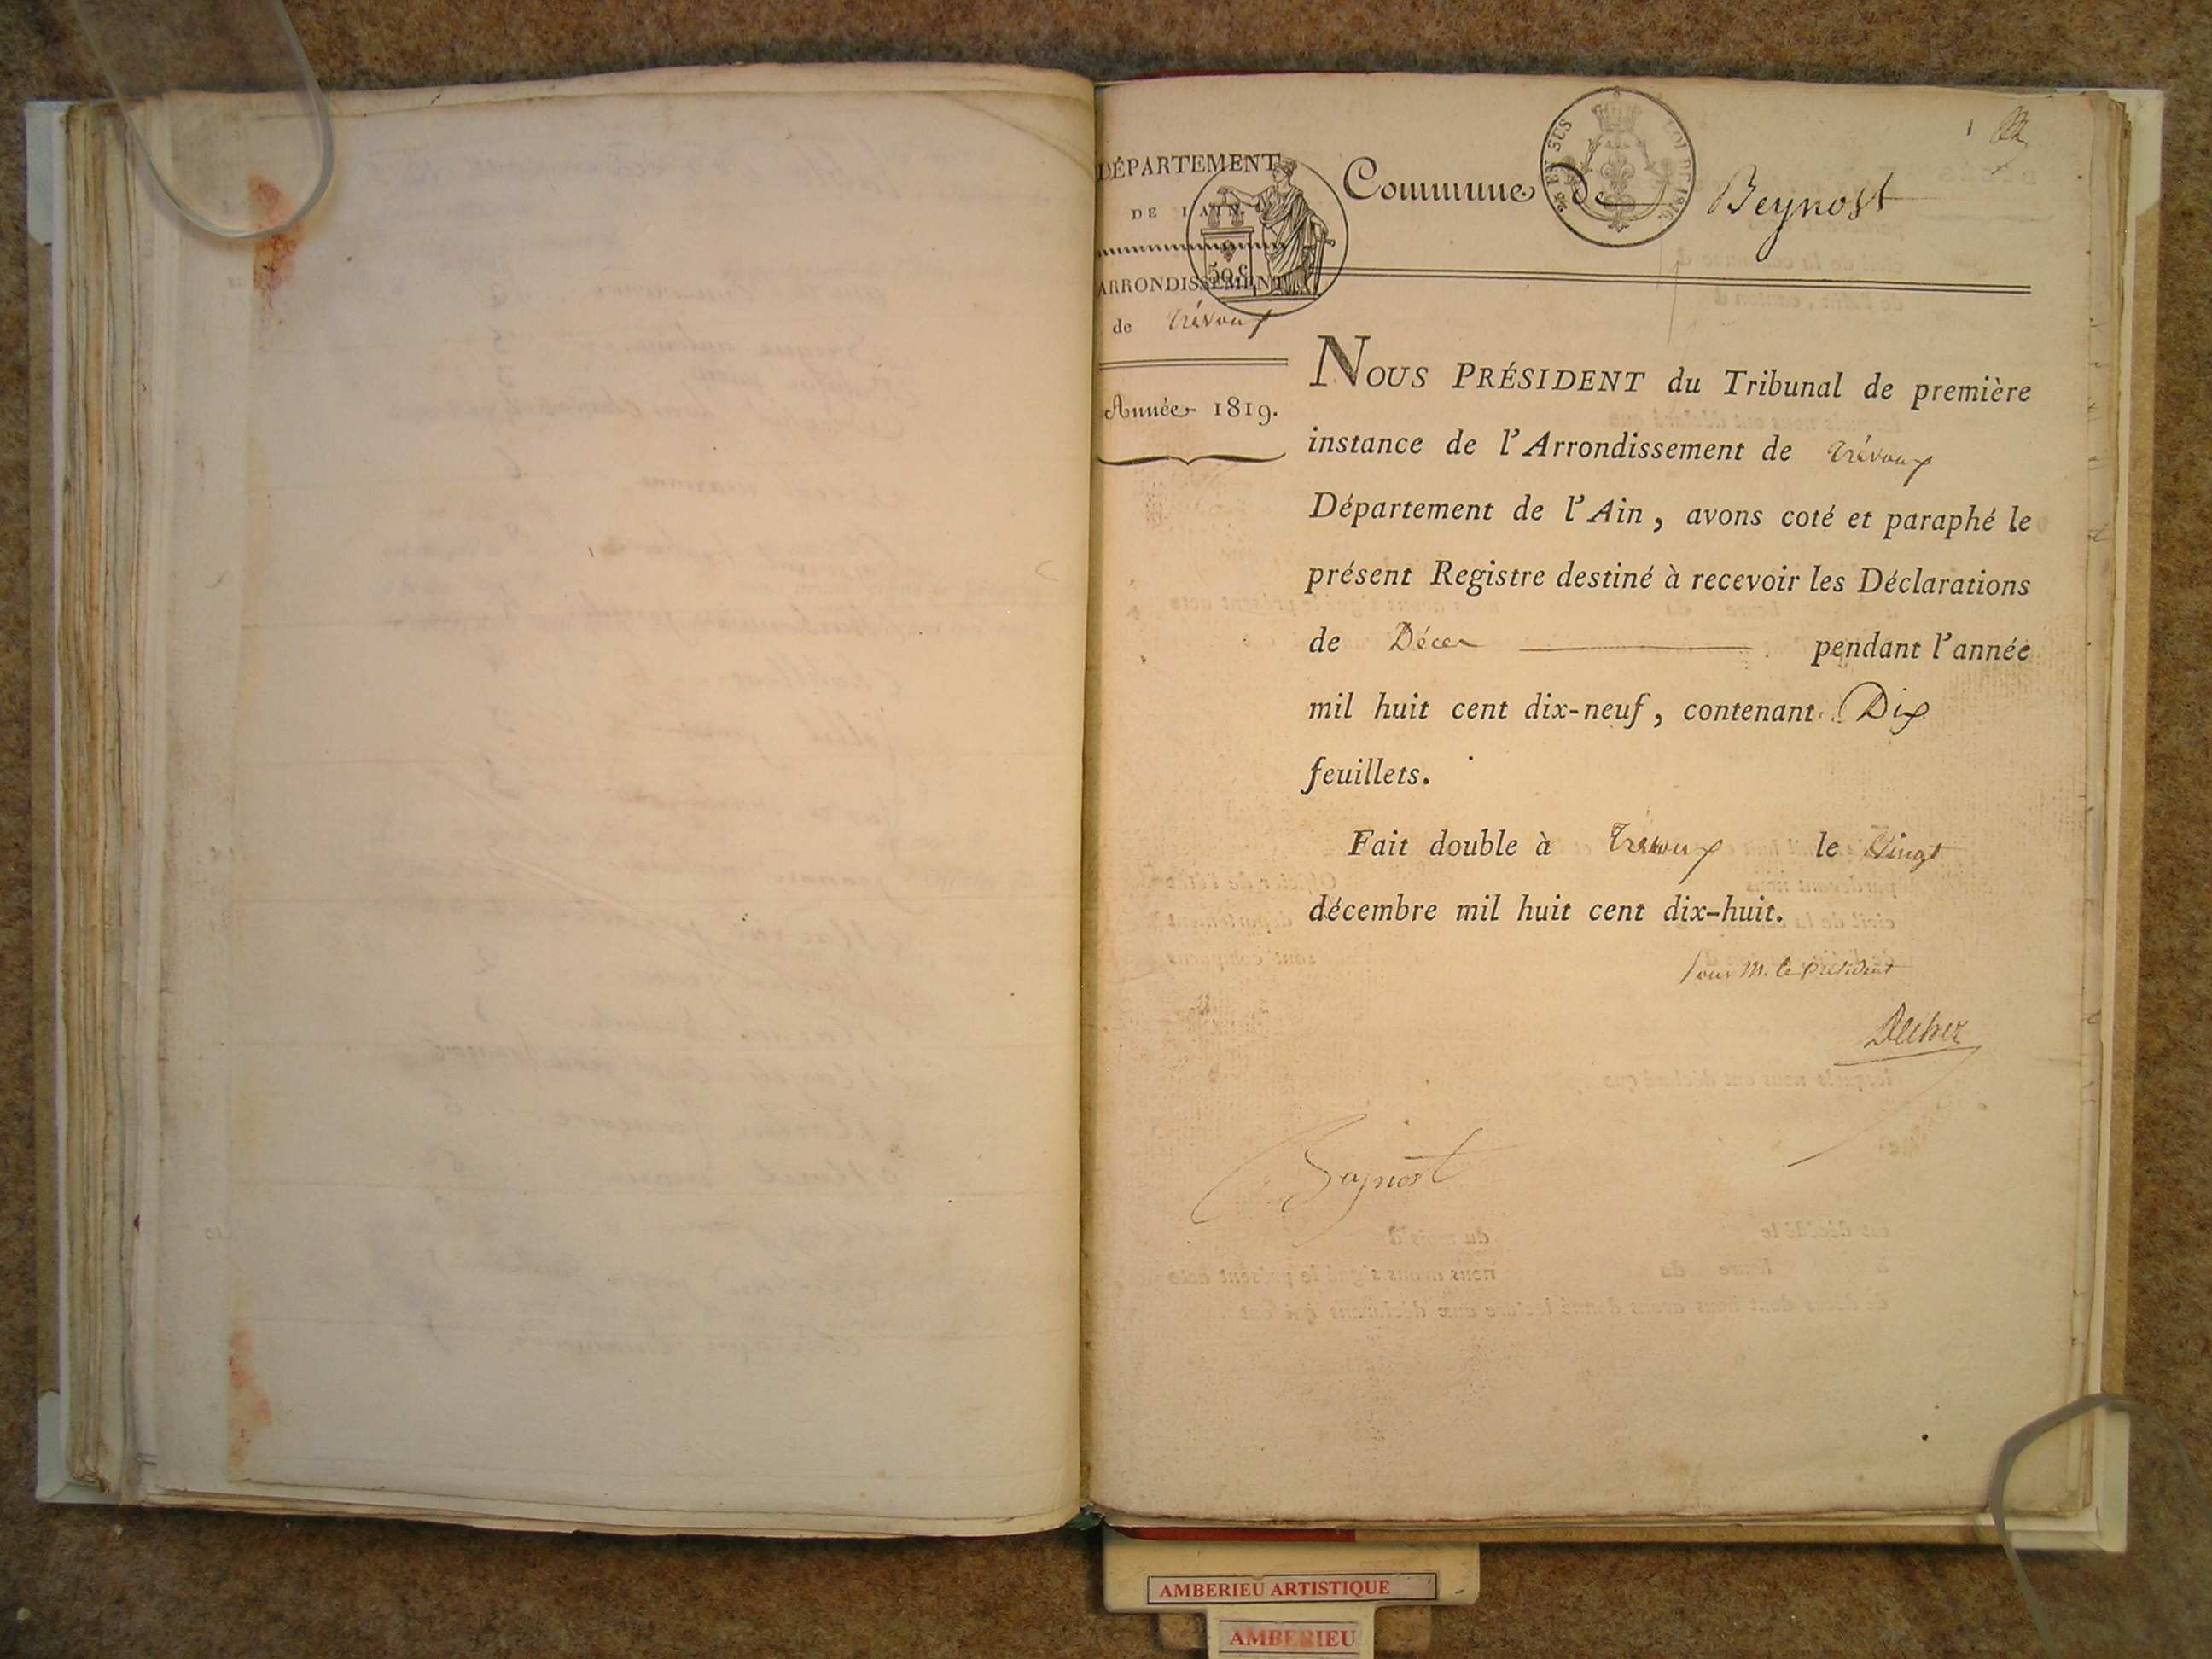 DÉPARTEMENT
DE L'AIN.
50 c
ARRONDISSEMENT
de Trévoux
Année 1819.
EN SUS
LOI DE 1816.
1
Commune de Beynost
NOUS PRÉSIDENT du Tribunal de première
instance de l'Arrondissement de Trévoux
Département de l'Ain, avons coté et paraphé le
présent Registre destiné à recevoir les Déclarations
de Décès pendant l'année
mil huit cent dix-neuf, contenant Dix
feuillets.
Fait double à Trévoux le Vingt
décembre mil huit cent dix-huit.
Pour M. le Président
Beynost
AMBERIEU ARTISTIQUE
AMBERIEU